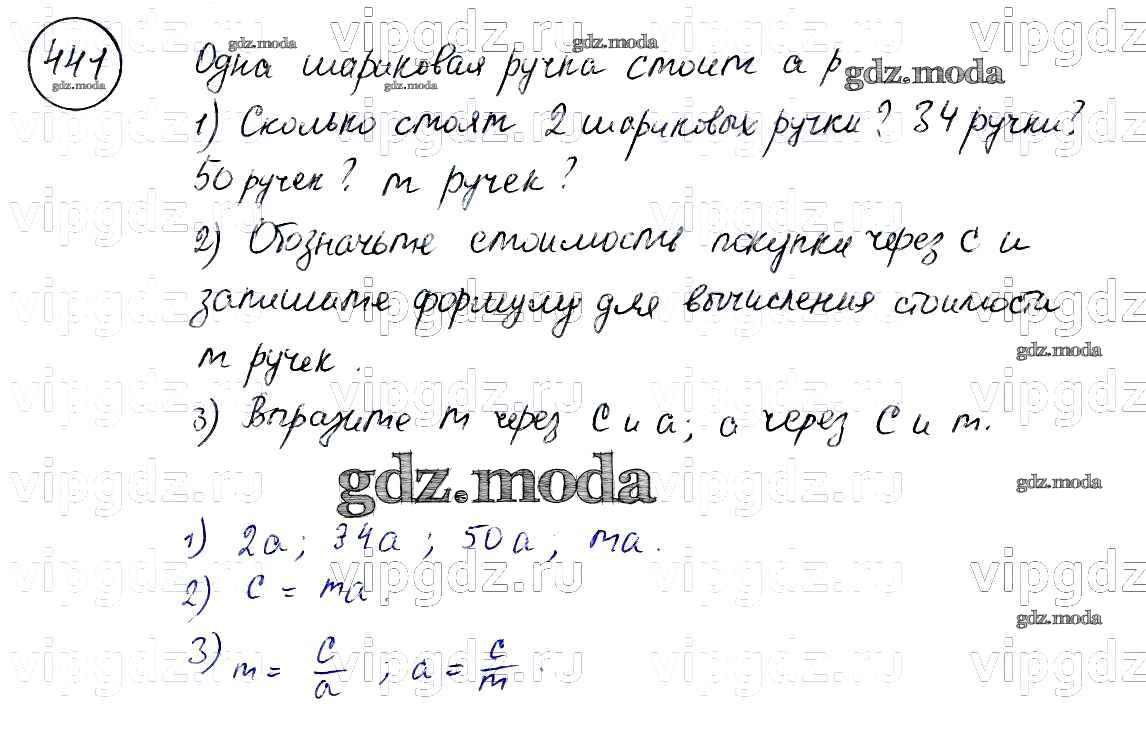 441
Одна шариковая ручка стоит a р
1) Сколько стоят 2 шариковых ручки? 34 ручки?
50 ручек? m ручек?
2) Обозначьте стоимость покупки через C и
запишите формулу для вычисления стоимости
m ручек.
3) Выразите m через C и a; a через C и m.
gdz.moda
1) 2a; 34a; 50a; ma.
2) C = ma
3) m = C/a, a = C/m.